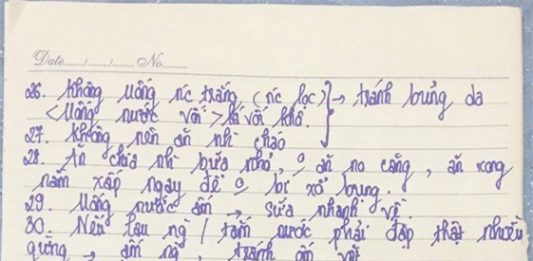 Date___/___/___ No___
26. Không uống nc trắng (nc lọc) → tránh bụng da
<Uống nước vối> lá vối khô.
27. Không nên ăn nh cháo
28. Ăn chia nh bữa nhỏ, o ăn no căng, ăn xong
nằm xấp ngay để o bị xổ bụng.
29. Uống nước ấm → sữa nhanh về.
30. Nên lau ng / tắm nước phải đập thật nhiều
gừng → ấm ng, tránh